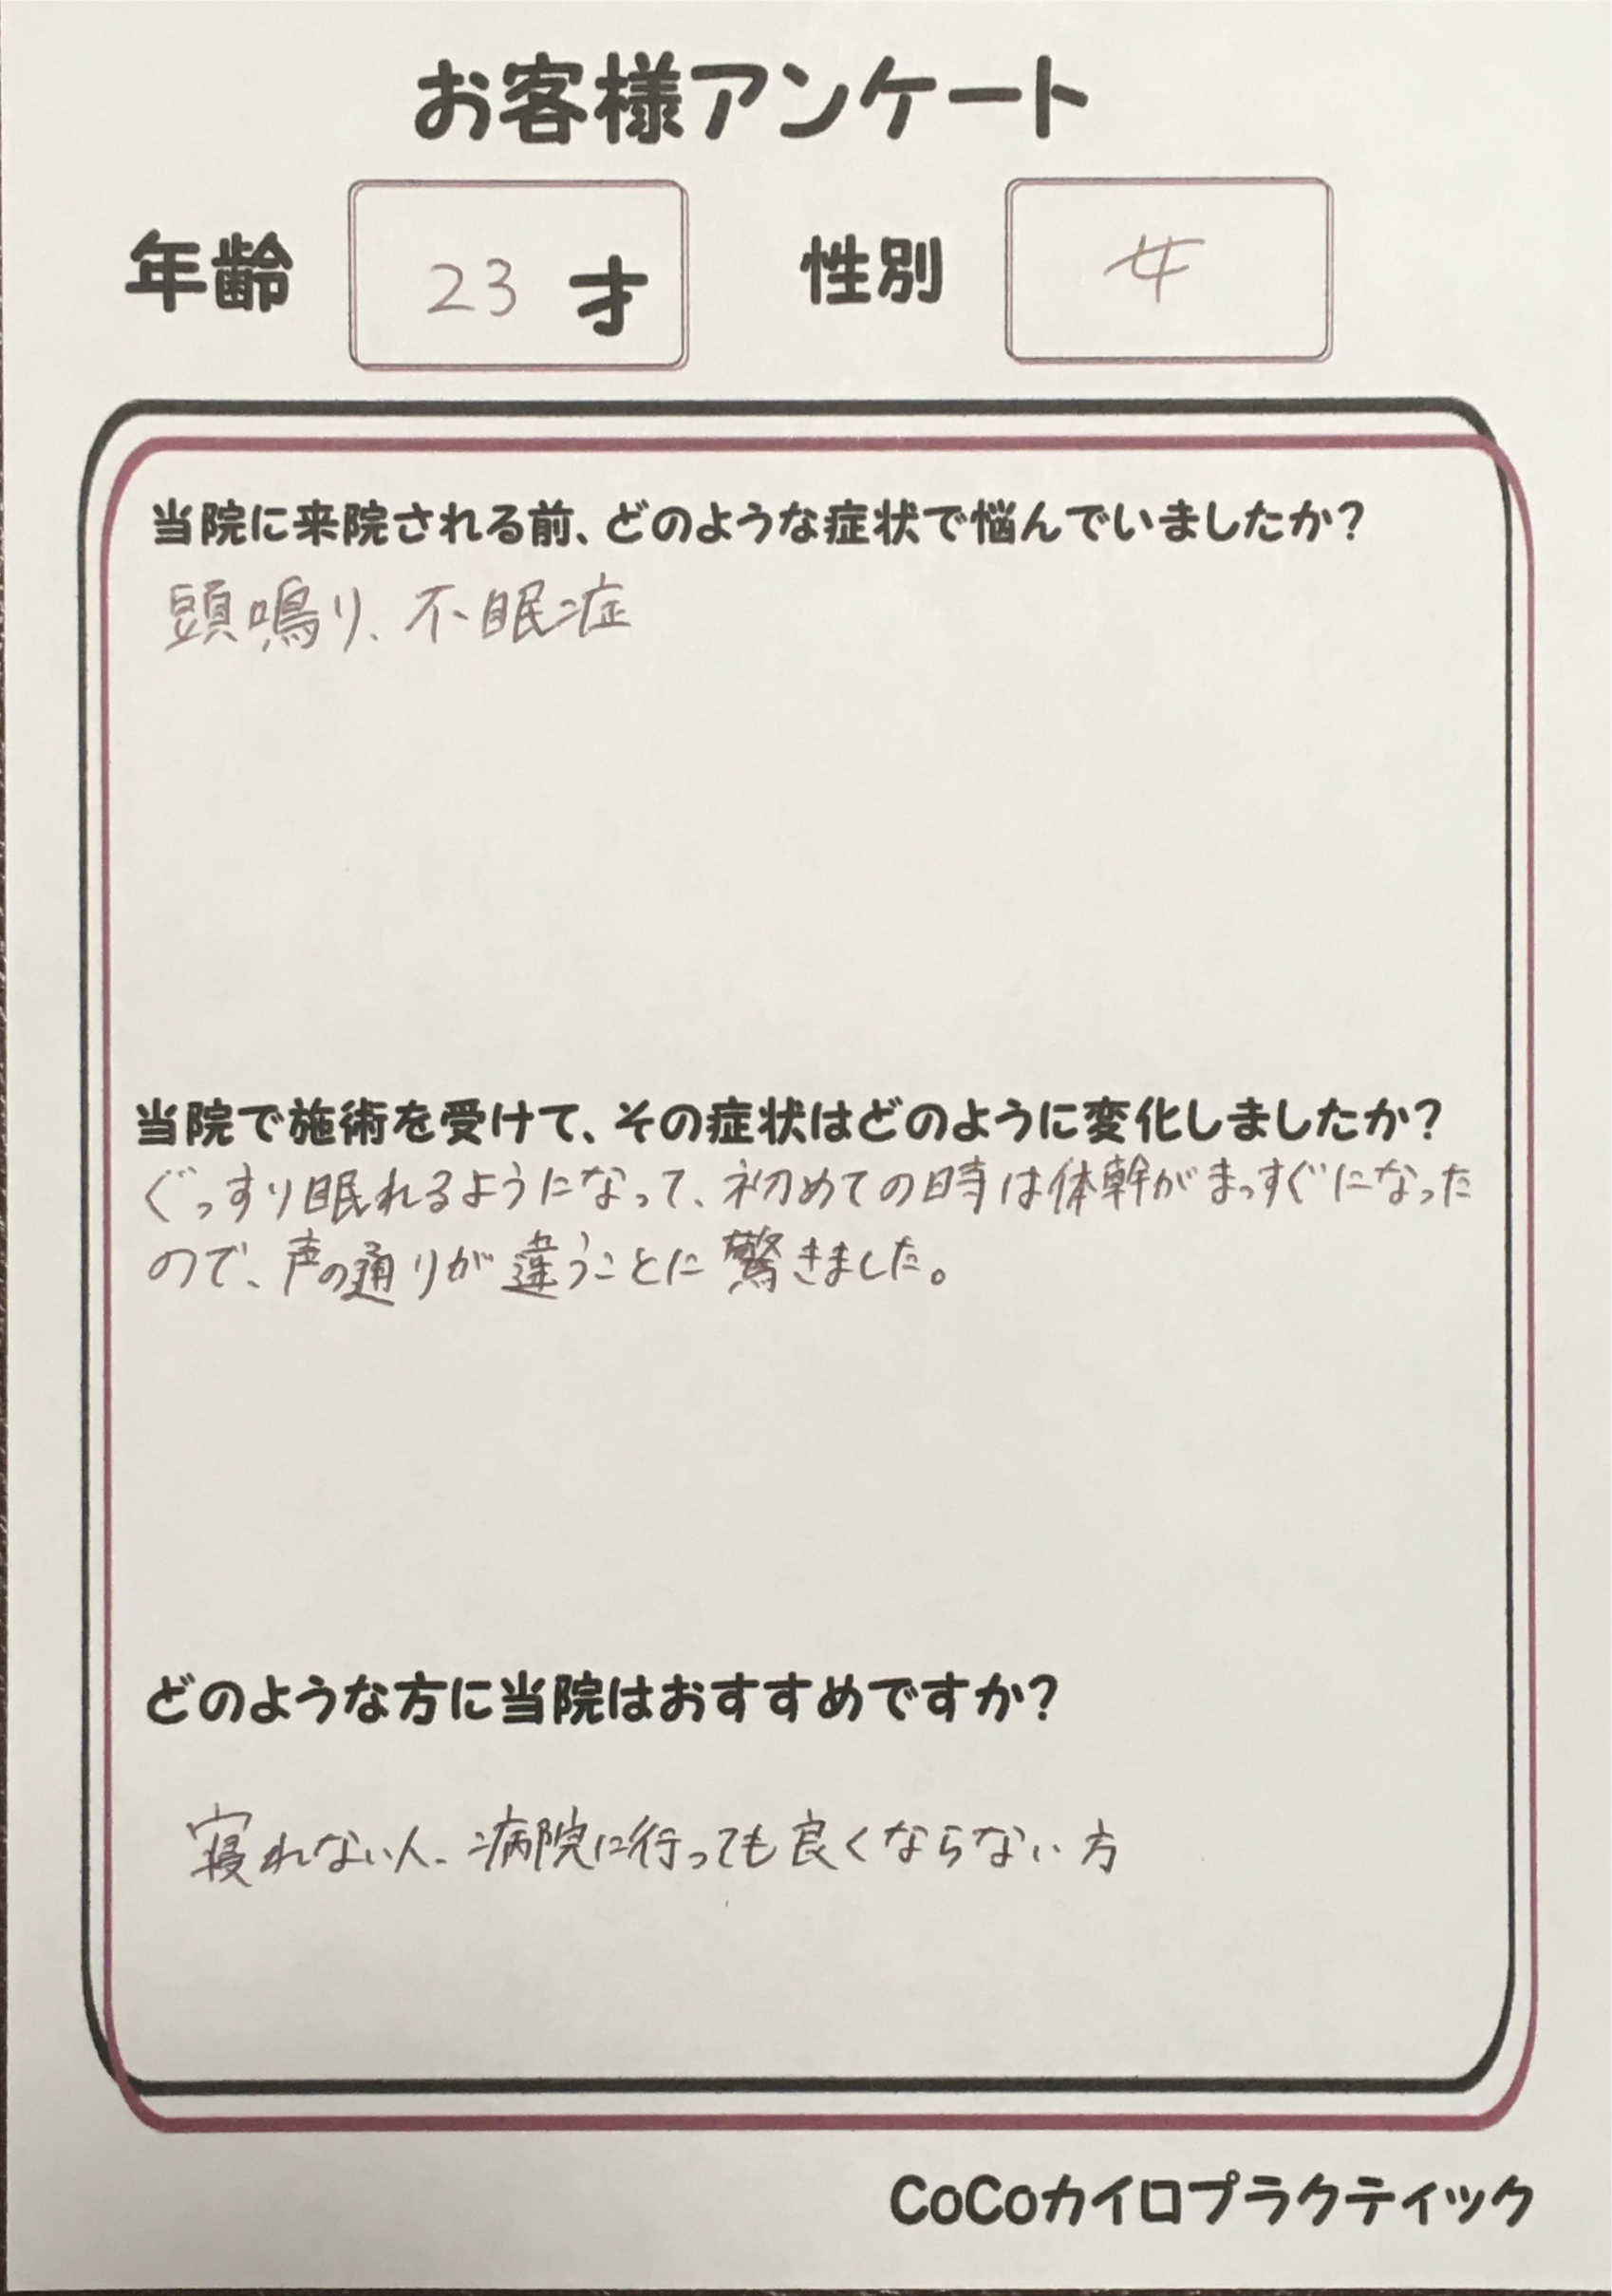 お客様アンケート
年齢 23 才 性別 女
当院に来院される前、どのような症状で悩んでいましたか?
頭鳴り、不眠症
当院で施術を受けて、その症状はどのように変化しましたか?
ぐっすり眠れるようになって、初めての時は体幹がまっすぐになった
ので、声の通りが違うことに驚きました。
どのような方に当院はおすすめですか?
寝れない人、病院に行っても良くならない方
CoCoカイロプラクティック